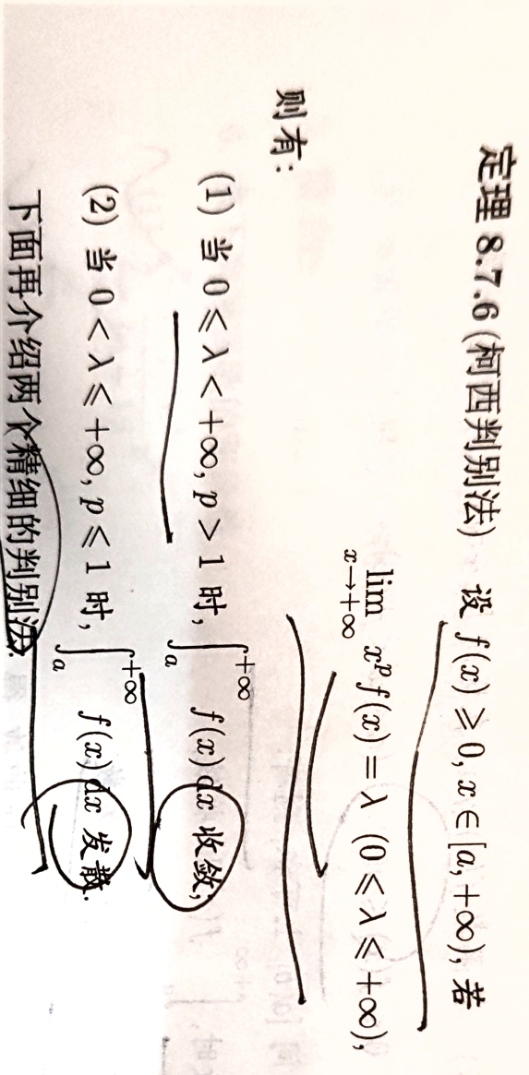 定理 8.7.6 (柯西判别法) 设 f(x) ⩾ 0, x ∈ [a, +∞), 若
lim x→+∞ x^p f(x) = λ (0 ⩽ λ ⩽ +∞),
则有:
(1) 当 0 ⩽ λ < +∞, p > 1 时, ∫_a^{+∞} f(x) dx 收敛;
(2) 当 0 < λ ⩽ +∞, p ⩽ 1 时, ∫_a^{+∞} f(x) dx 发散.
下面再介绍两个精细的判别法.